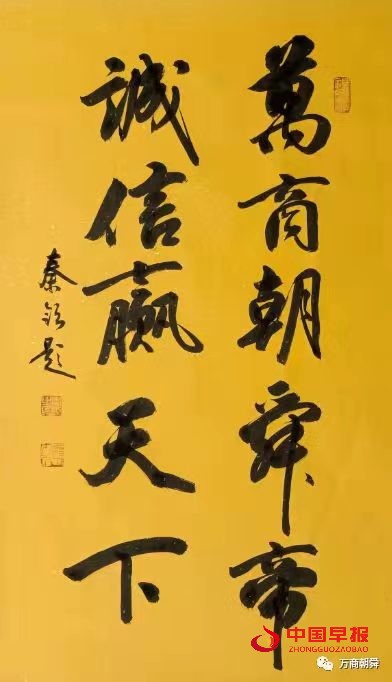 萬商朝舜帝
誠信赢天下
秦 题
中国早报
ZHONGGUOZAOBAO
万商朝舜